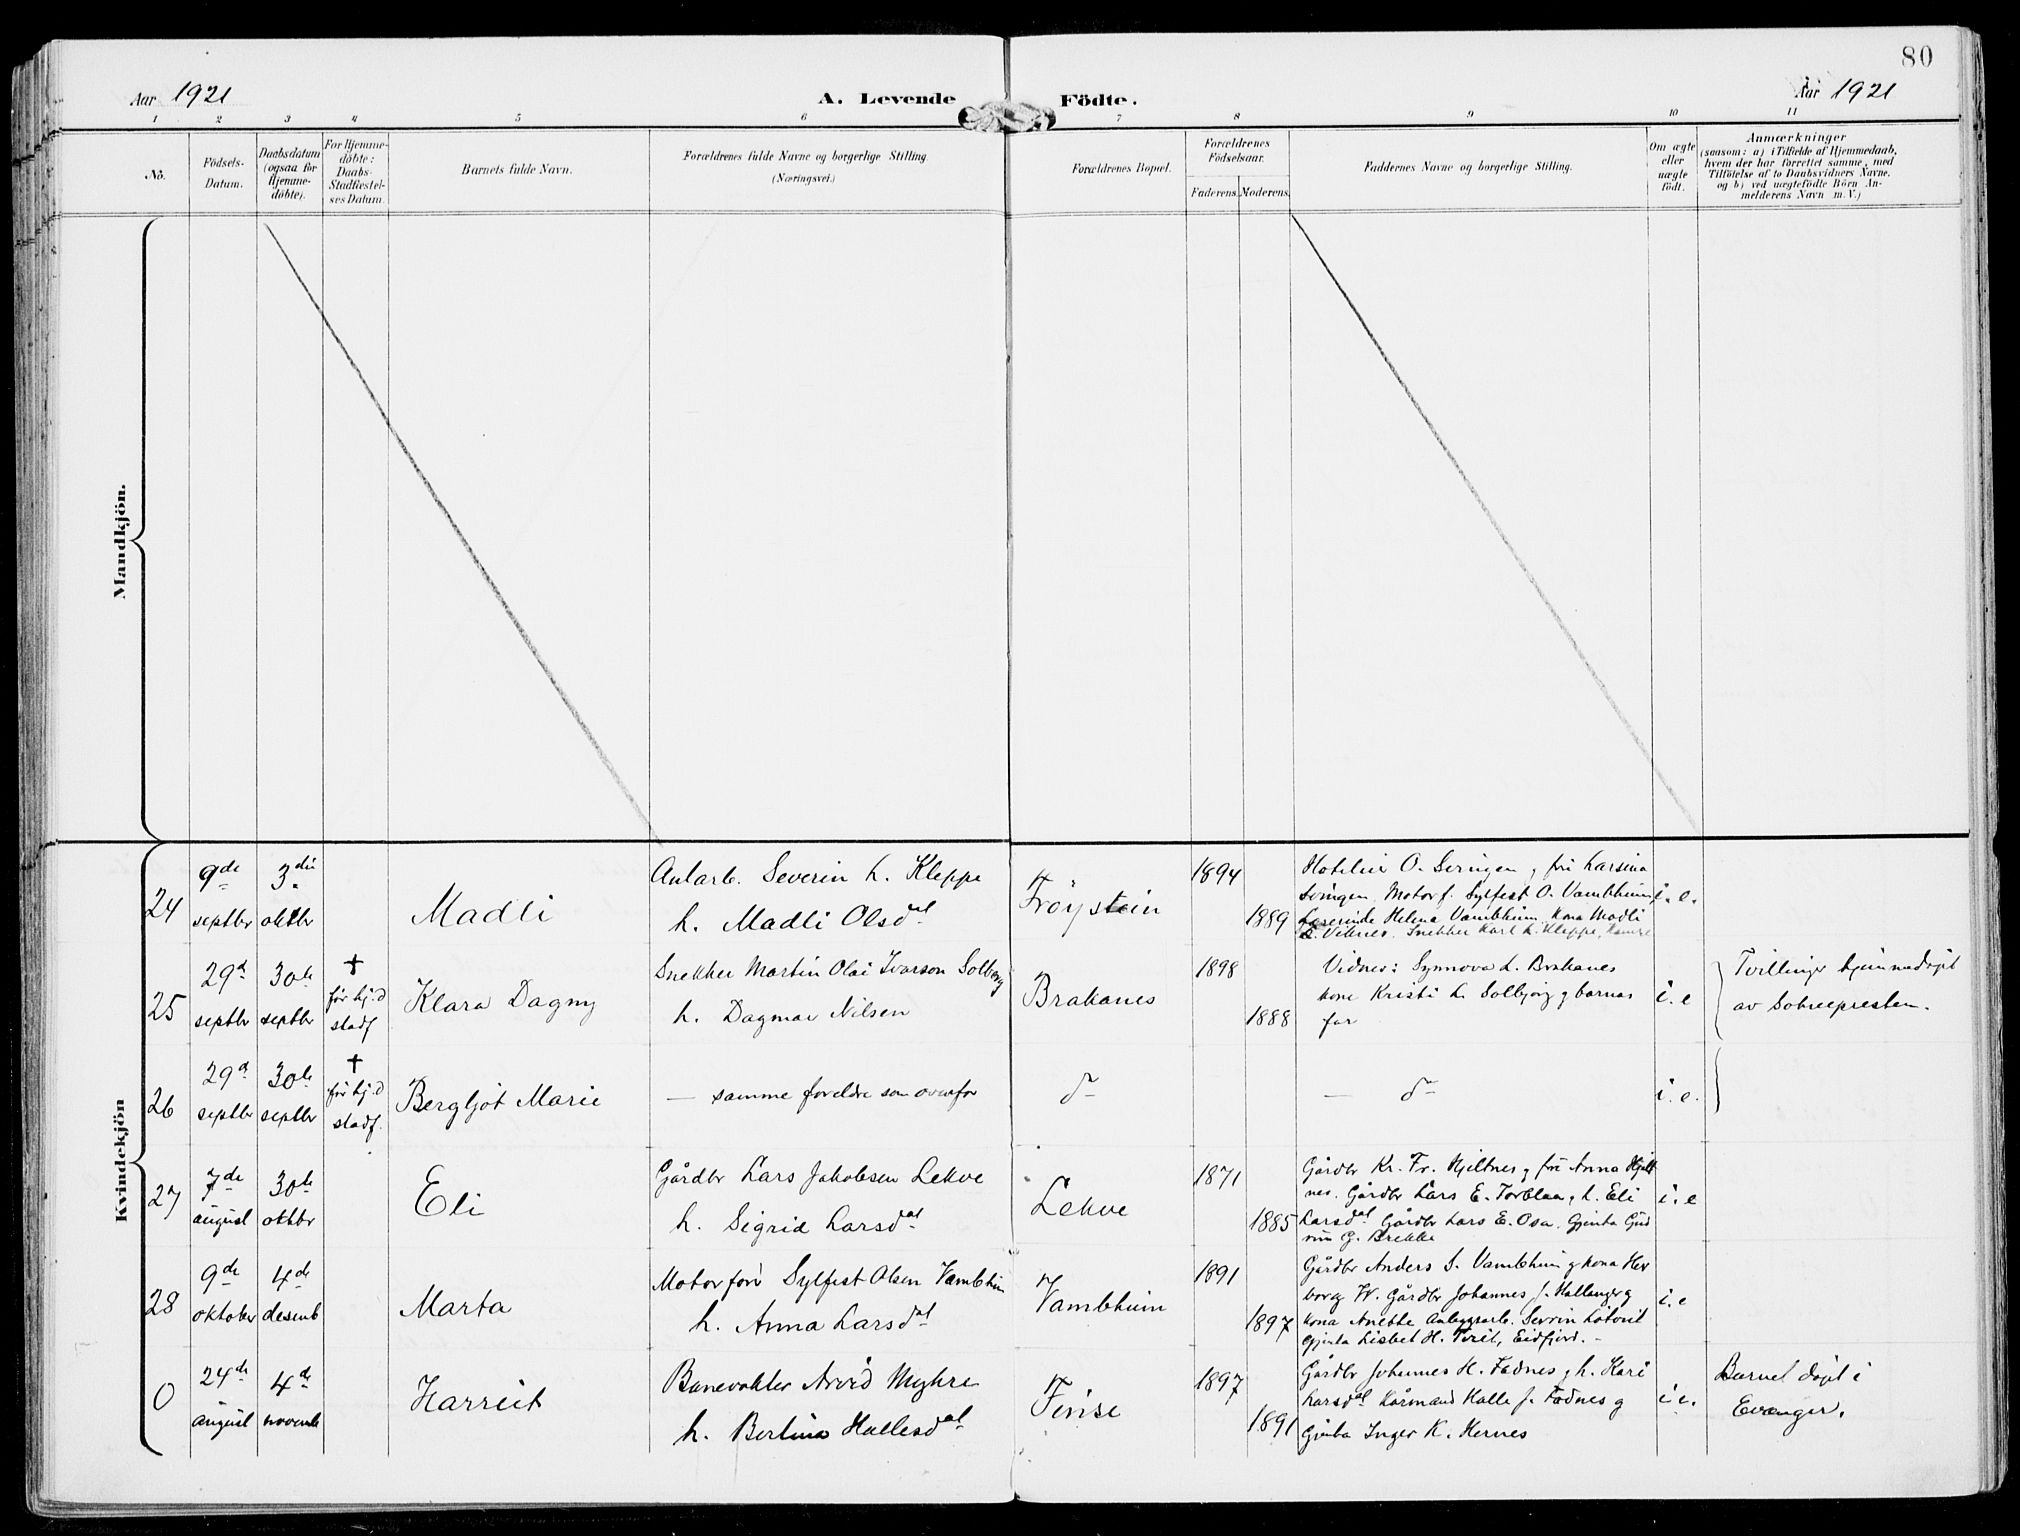 80
Aar 1921
A. Levende Födte.
Aar 1921
1 2 3 4 5 6 7 8 9 10 11
No.
Födsels-
Datum.
Daabsdatum
(ogsaa för
Hjemme-
döbte).
For Hjemme-
döbte:
Daabs-
Stadfæstel-
ses Datum.
Barnets fulde Navn.
Forældrenes fulde Navne og borgerlige Stilling.
(Næringsvei.)
Forældrenes Bopæl.
Forældrenes
Födselsaar.
Faderens. Moderens.
Faddernes Navne og borgerlige Stilling.
Om ægte
eller
uægte
födt.
Anmærkninger
(saasom: a) i Tilfælde af Hjemmedaab,
hvem der har forrettet samme, med
Tilföielse af to Daabsvidners Navne,
og b) ved uægtefödte Börn An-
melderens Navn m. V.)
Mandkjön.
Kvindekjön
24
9de
septbr
3die
oktbr
Madli
Anlarb. Severin L. Kleppe
h. Madli Olsdat
Fröystein
1894
1889
O. fru Larsina
Motorf. Sylfest O. Vambheim
Helena Vambheim, kona Madli
Snekker Karl L. Kleppe
i. e.
25
29d
septbr
30te
septbr
†
før hj.d
stadf.
Klara Dagny
Snekker Martin Olai Ivarson Solberg
h. Dagmar Nilsen
Brakanes
1898
1888
Vidner: Synnova L. Brakanes
kone Kristi L. Solbjorg g barnas
far
i. e
Tvillinger hjemmedøpt
av Soknepresten.
26
29d
septbr
30te
septbr
†
før hj.d
stadf.
Bergljot Marie
— samme foreldre som ovenfor
do
— do
i. e.
27
7de
august
30te
oktbr
Eli
Gårdbr Lars Jakobsen Lekve
h. Sigrid Larsdat
Lekve
1871
1885
Gårdbr Kr. Fr. Hjeltnes g fru Anna Hjelt
nes. Gårdbr Lars E. Torblaa g h. Eli
Larsdat Gårdbr Lars E. Osa. Gjenta Gud
run G. Brekke
i. e
28
9de
oktober
4de
desemb
Marta
Motorfør Sylfest Olsen Vambheim
h. Anna Larsdat
Vambheim
1891
1897
Gårdbr Anders S. Vambheim g kona Her
borg W. Gårdbr Johannes J. Hallanger g
kona Anette Anleggsarb. Sevrin
gjenta Lisbet H. Tveit, Eidfjord. –
i. e
0
24de
august
4de
novemb
Harriet
Banevokter Arvid Myhre
h. Bertina Hallesdat
Finse
1897
1891
Gårdbr Johannes H. Fadnes g h. Kari
Larsdat Kårmand Halle J. Fadnes g
Gjenta Inger K. Hernes
i. e.
Barnet døpt i
Evanger.